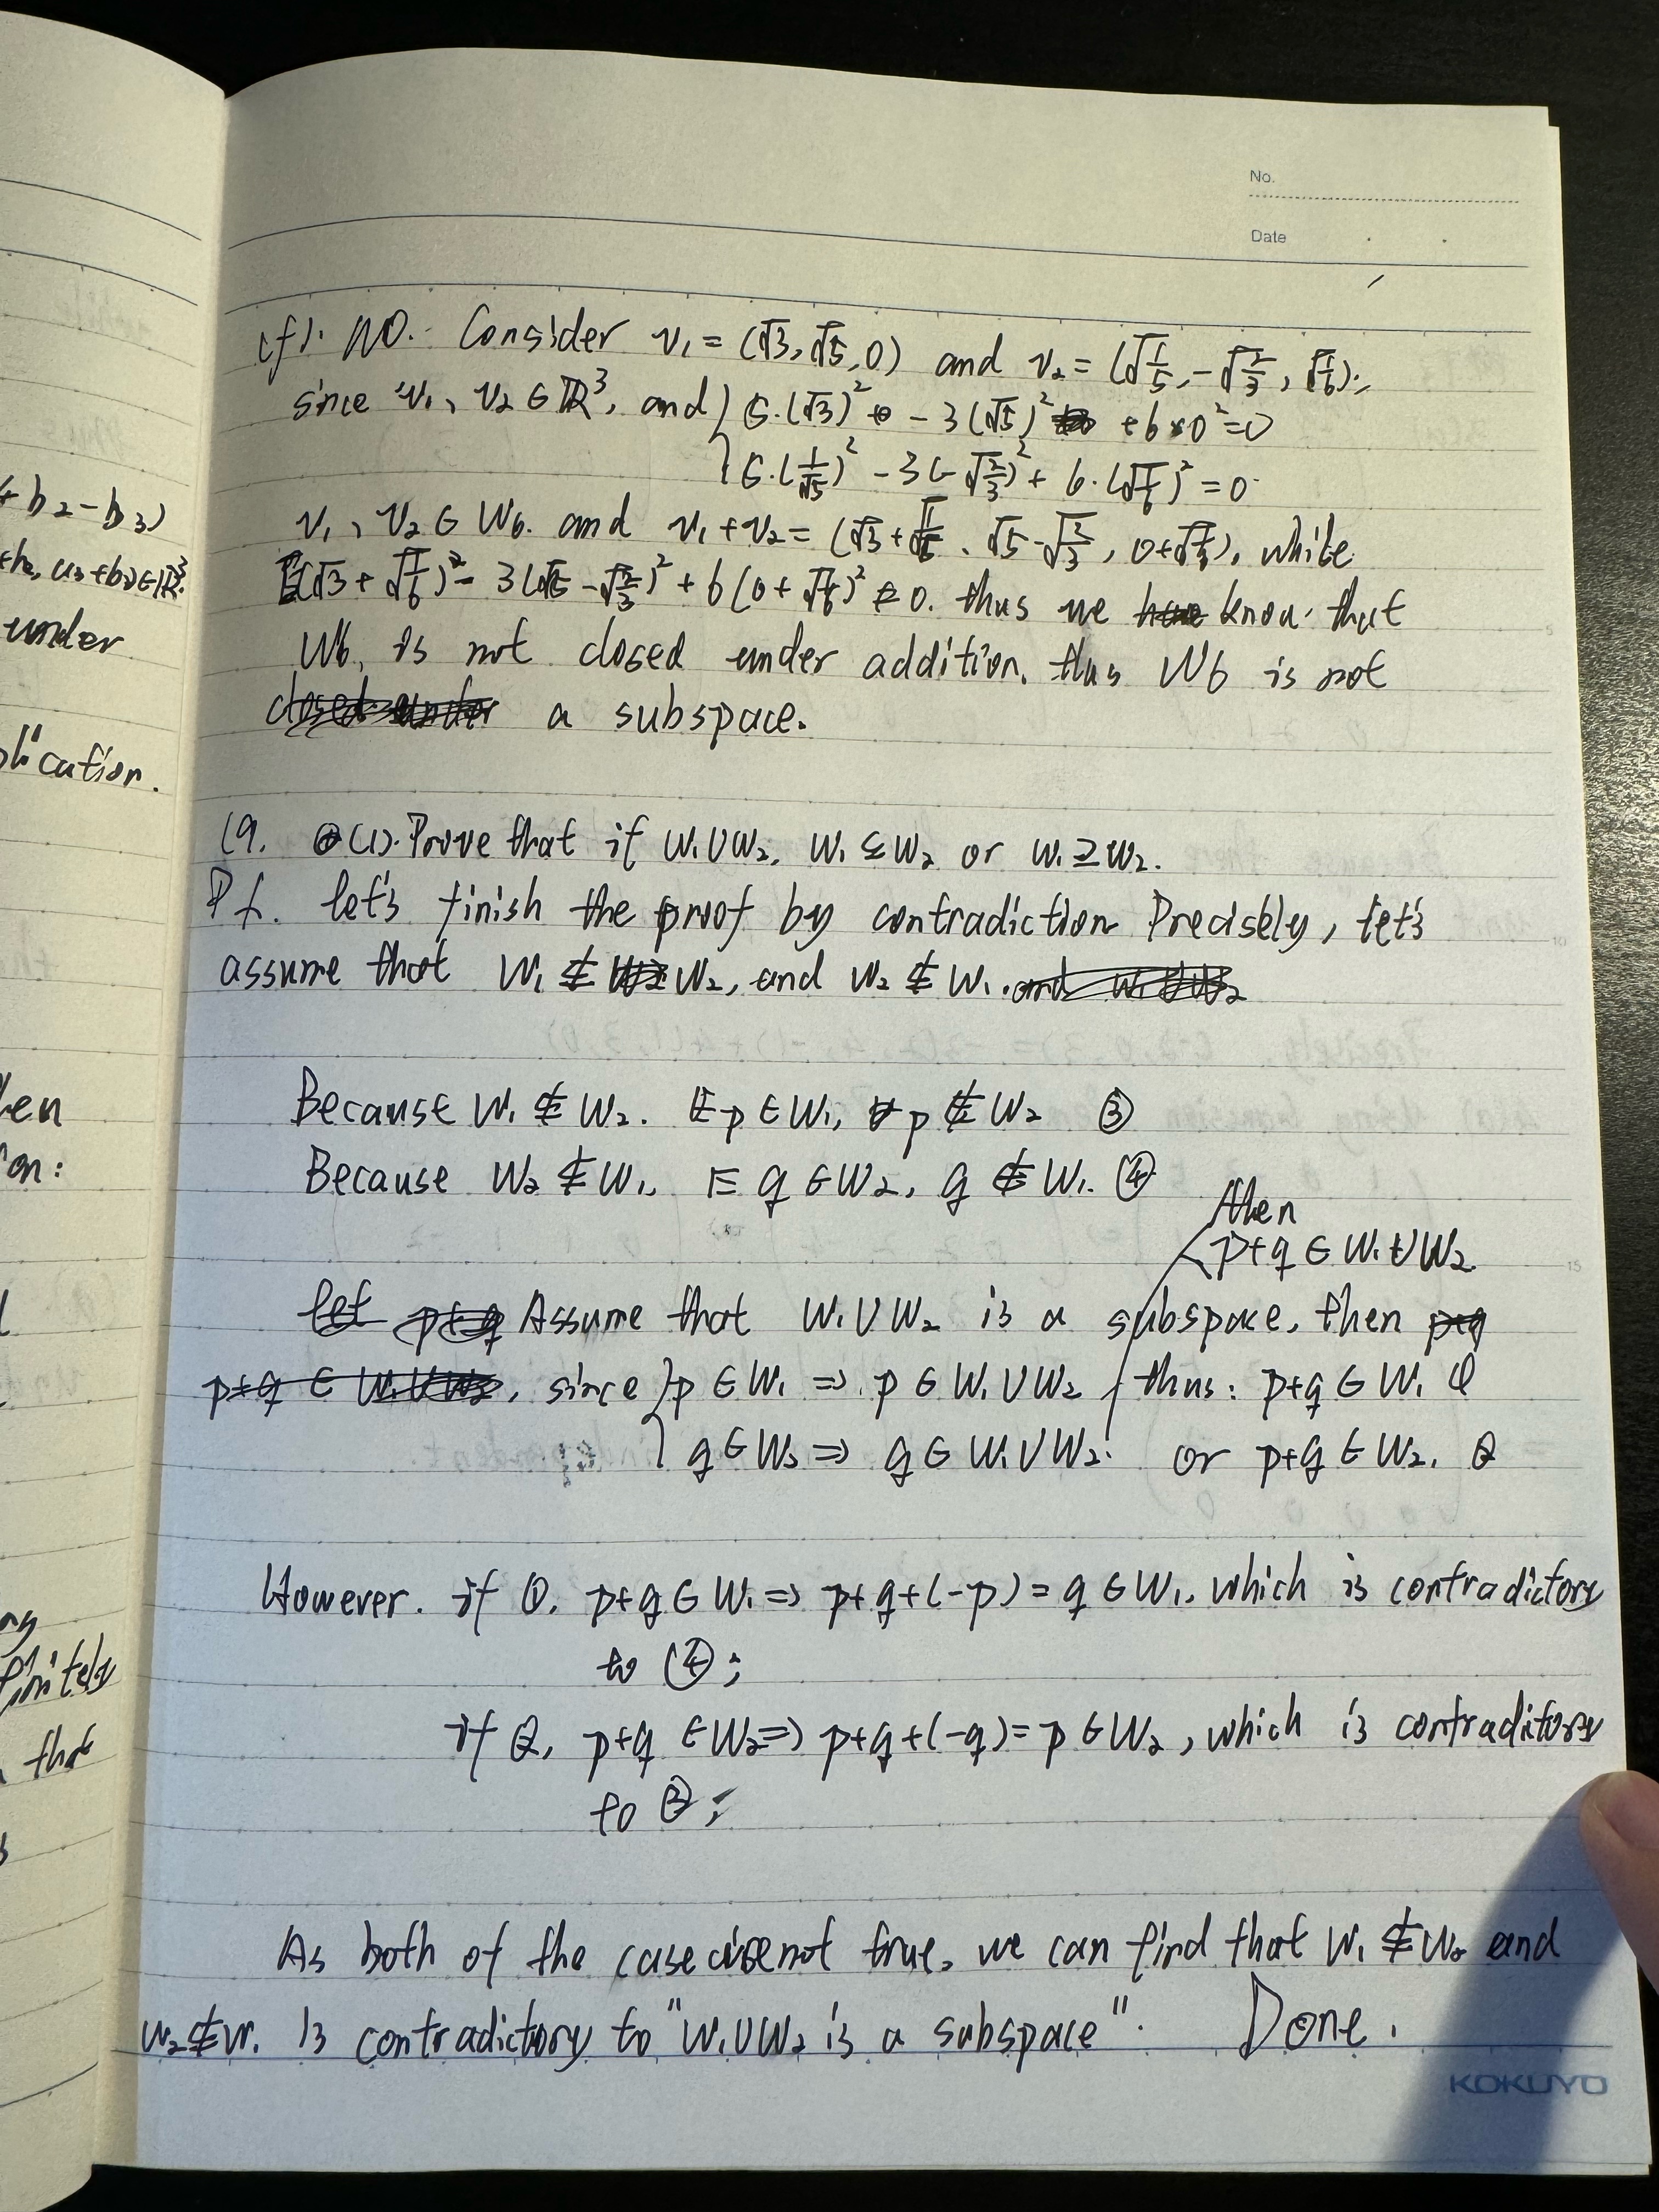 + b₂ - b₃)
+b₂, a₃+b₃) ∈ ℝ³.
under
plication.
on:
that
No.
Date
(f). NO. Consider v₁ = (√3, √5, 0) and v₂ = (√1/5, -√2/3, √1/6).
since v₁, v₂ ∈ ℝ³, and { 5·(√3)² - 3(√5)² + 6×0² = 0
5·(1/√5)² - 3(-√2/3)² + 6·(√1/6)² = 0
v₁, v₂ ∈ W₆. and v₁+v₂ = (√3+√1/5, √5-√2/3, 0+√1/6), while
5(√3+√1/6)² - 3(√5-√2/3)² + 6(0+√1/6)² ≠ 0. thus we know that
W₆, is not closed under addition, thus W₆ is not
a subspace.
19. (1). Prove that if W₁∪W₂, W₁ ⊆ W₂ or W₁ ⊇ W₂.
Pf. let's finish the proof by contradiction Precisely, let's
assume that W₁ ⊈ W₂, and W₂ ⊈ W₁.
Because W₁ ⊈ W₂. ∃ p ∈ W₁, p ∉ W₂ ③
Because W₂ ⊈ W₁, ∃ q ∈ W₂, q ∉ W₁. ④
then
p+q ∈ W₁∪W₂
Assume that W₁∪W₂ is a subspace, then
, since { p ∈ W₁ ⇒ p ∈ W₁∪W₂ thus: p+q ∈ W₁ ①
q ∈ W₂ ⇒ q ∈ W₁∪W₂. or p+q ∈ W₂. ②
However. if ①, p+q ∈ W₁ ⇒ p+q+(-p) = q ∈ W₁, which is contradictory
to ④;
if ②, p+q ∈ W₂ ⇒ p+q+(-q) = p ∈ W₂, which is contradictory
to ③;
As both of the case are not true, we can find that W₁ ⊈ W₂ and
W₂ ⊈ W₁ is contradictory to "W₁∪W₂ is a subspace". Done.
KOKUYO